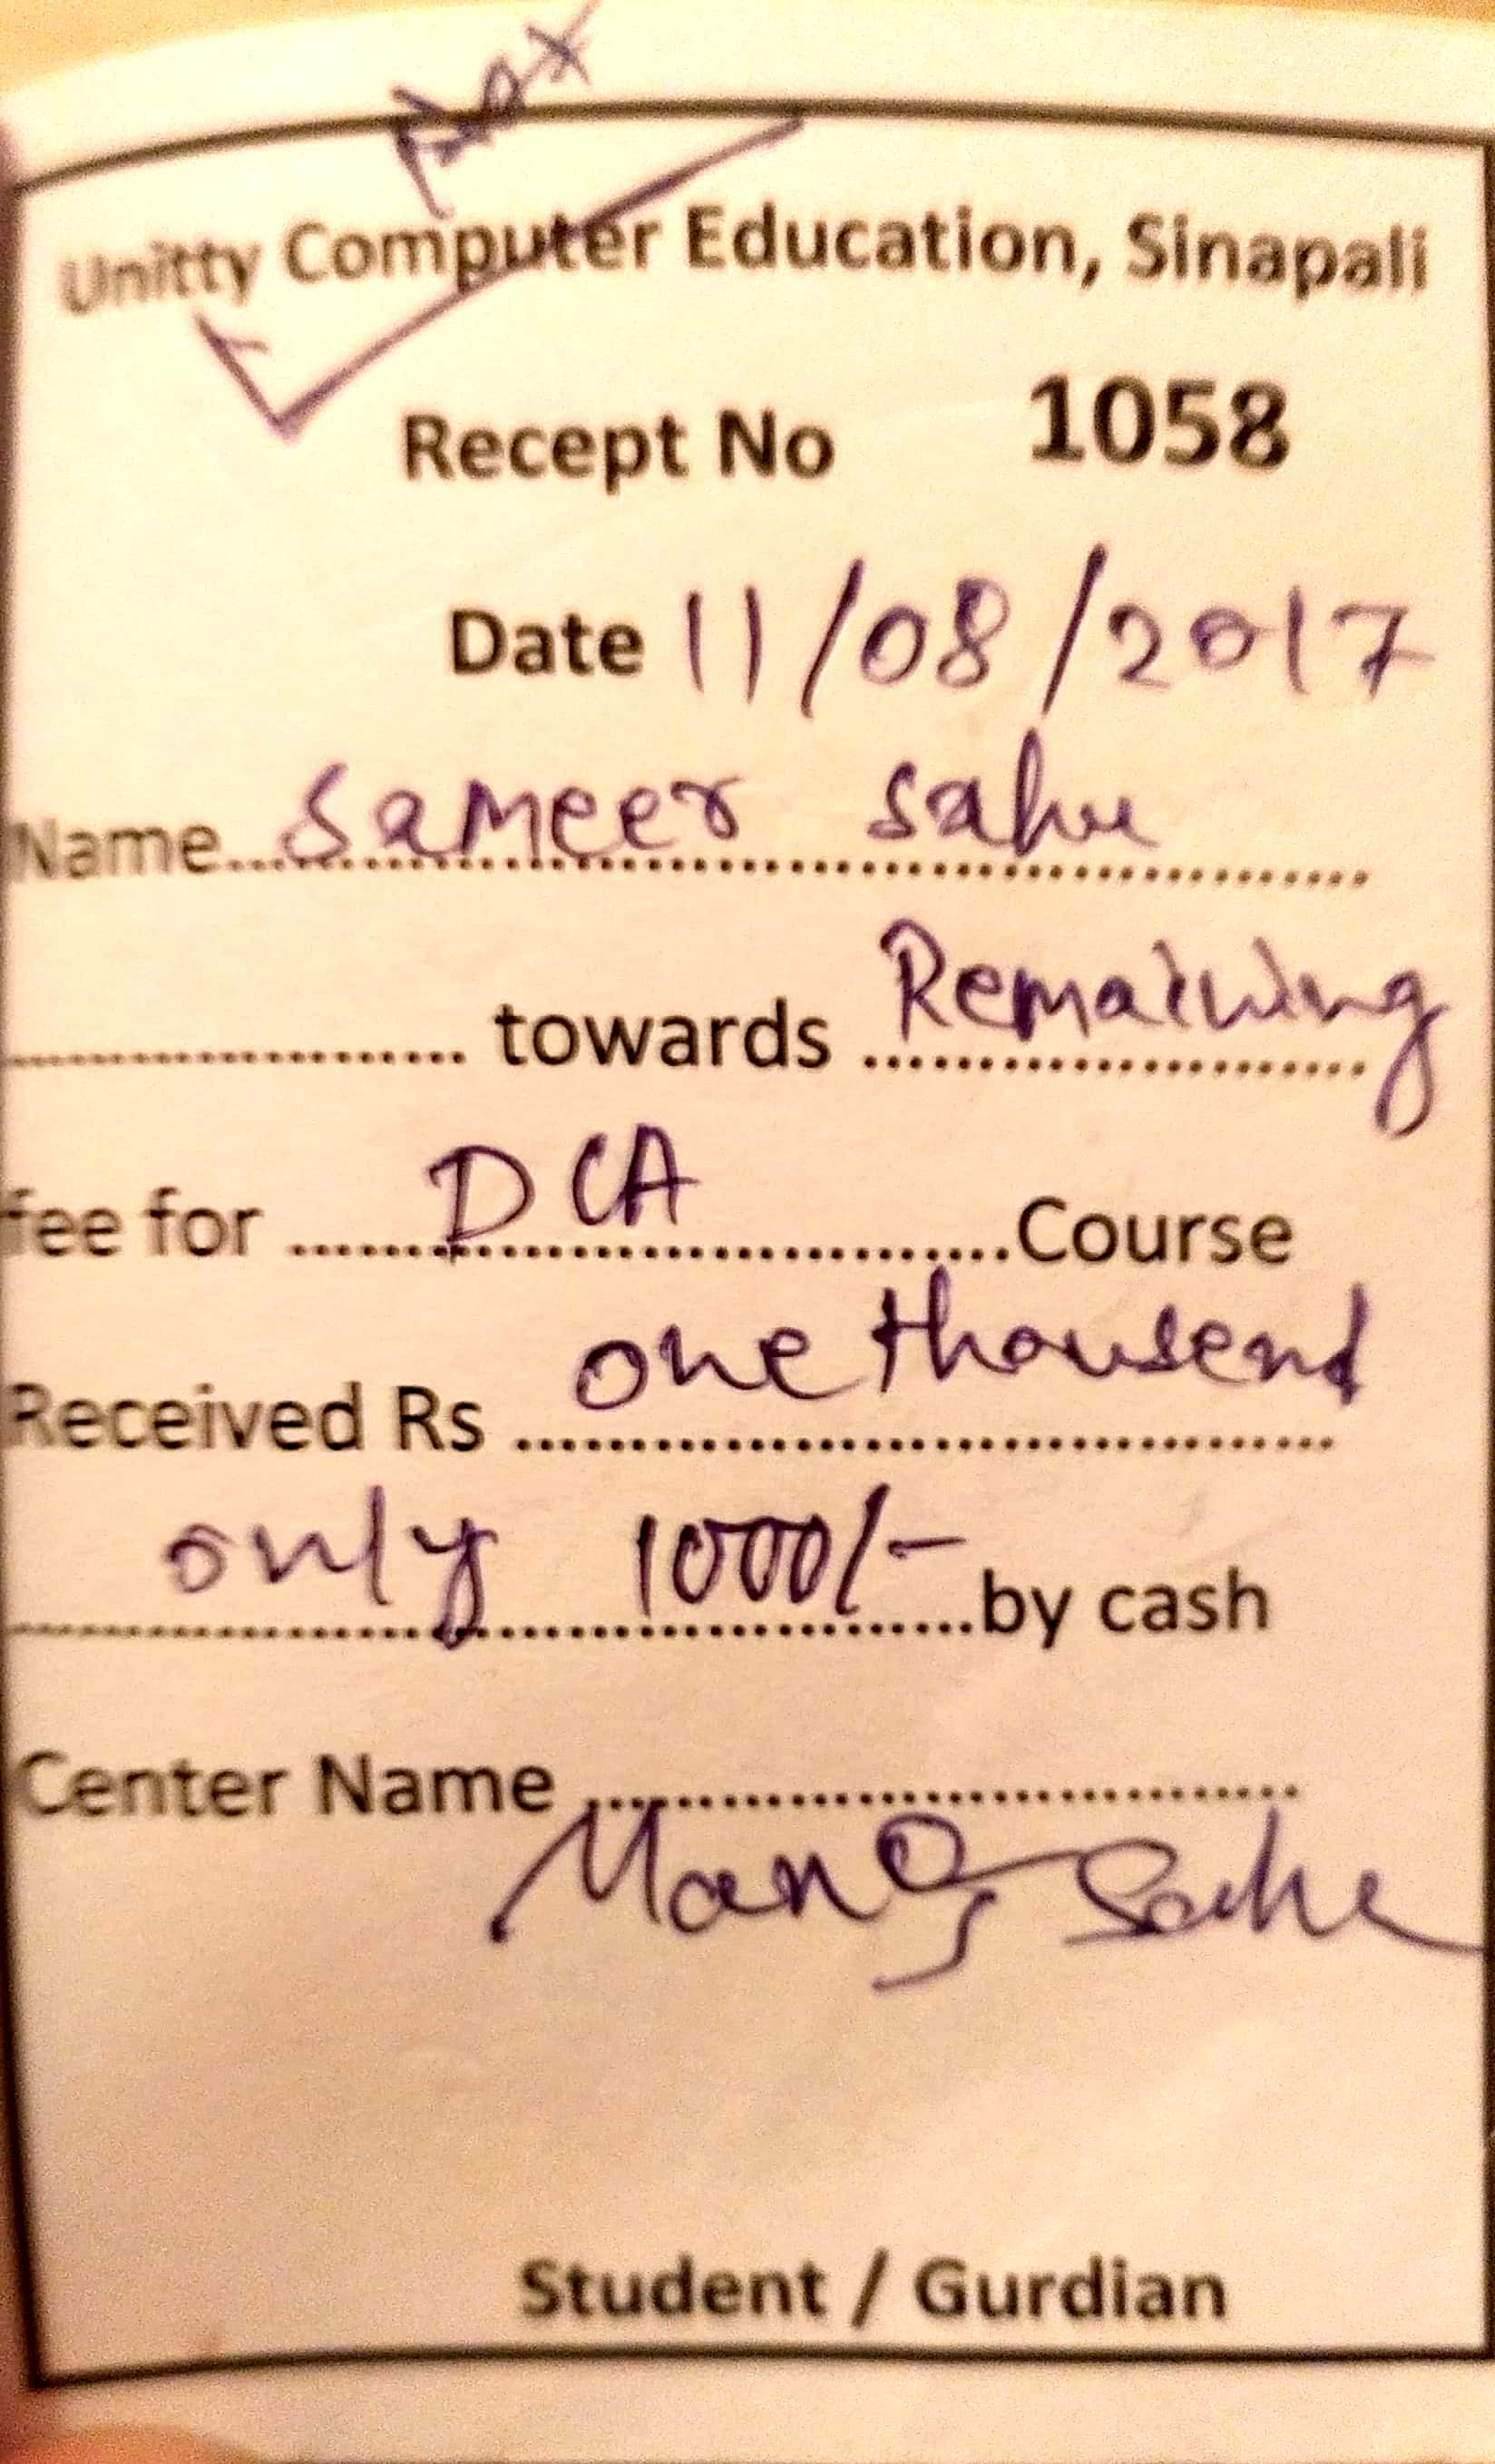 Unitty Computer Education, Sinapali
Recept No 1058
Date 11/08/2017
Name....Sameer Sahu....
.................... towards Remaining
fee for ....DCA....Course
Received Rs one thousend
only 1000/- by cash
Center Name ....................
Manoj Sahu
Student / Gurdian